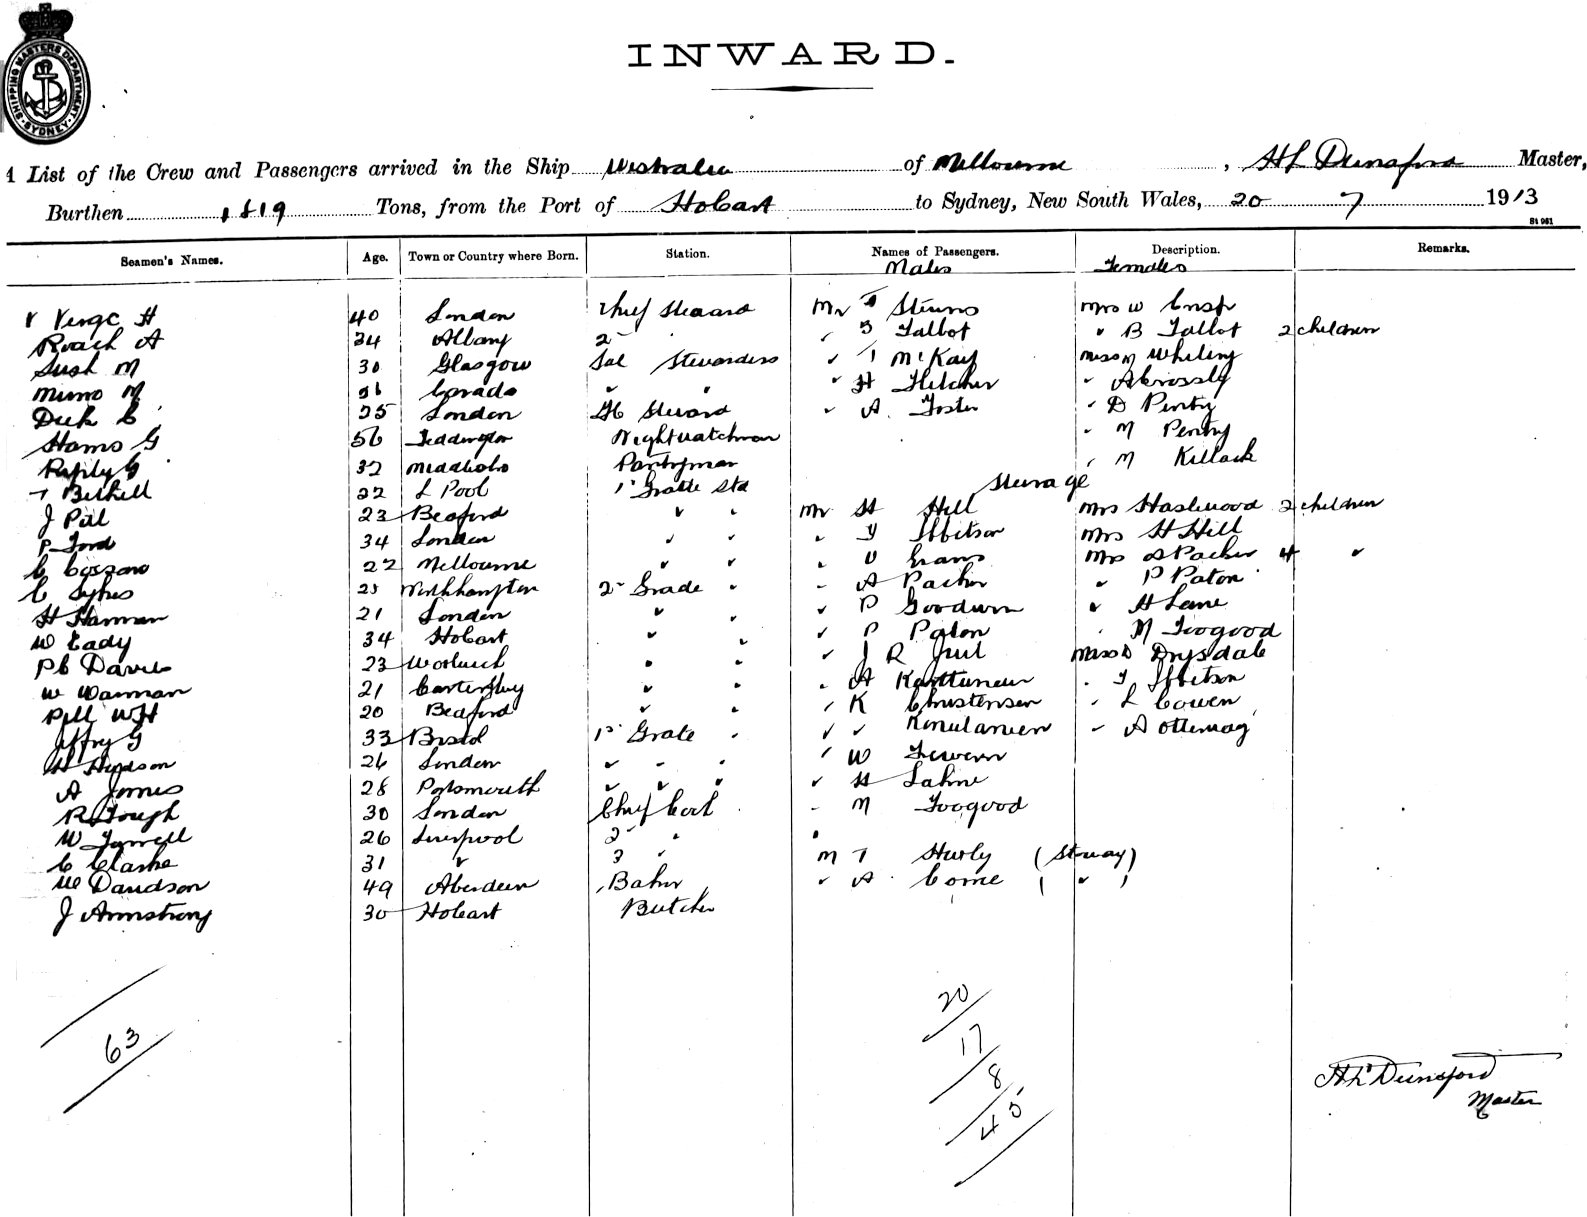 SHIPPING MASTERS DEPARTMENT
SYDNEY
INWARD.
A List of the Crew and Passengers arrived in the Ship Westralia of Melbourne, HL Dunsford Master,
Burthen 1819 Tons, from the Port of Hobart to Sydney, New South Wales, 20 7 1913
St 961
Seamen's Names. Age. Town or Country where Born. Station. Names of Passengers. Description. Remarks.
Males Females
H 40 London Chief Steward Mr Mrs W
Roach A 34 Albany 2 " Talbot " B Talbot 2 children
M 30 Glasgow Sal Stewardess " T McKay Miss M Whiting
Munro M " " " H Fletcher " A Crossly
Dick C 25 London Steward " A. Foster " D Pentry
G 56 Teddington Nightwatchman " M Pentry
G 32 Middlesbo Pantryman " M Killack
T Bethell 22 L Pool 1st Grade Std Steerage
J 23 Bedford " " Mr H Hill Mrs Haslewood 2 children
P Ford 34 London " " " Y Ibbitson Mrs H Hill
C 22 Melbourne " " " Evans Mrs A Packer 4 "
C Sykes 25 Wolverhampton 2nd Grade " " A Packer " P Paton
H Harman 21 London " " " P Goodwin " H Lane
W Eady 34 Hobart " " " P Paton " M Toogood
P C Davies 23 Woolwich " " " J R Miss D Drysdale
W Warman 21 Canterbury " " " A Karttunen " Y Ibbitson
Pill WH 20 Bedford " " " K Christensen " L Cowen
Jeffry G 33 Bristol 1st Grade " " " " A
H Hudson 26 London " " " " W
A Jones 28 Portsmouth " " " " H Lahne
R Tough 30 London Chief Cook " M Toogood
W Tyrrell 26 Liverpool 2 "
C Clarke 31 " 3 " M T Hurly (St-way)
W Davidson 49 Aberdeen Baker " A ( " )
J Armstrong 30 Hobart Butcher
63
20
17
8
45
HL Dunsford
Master